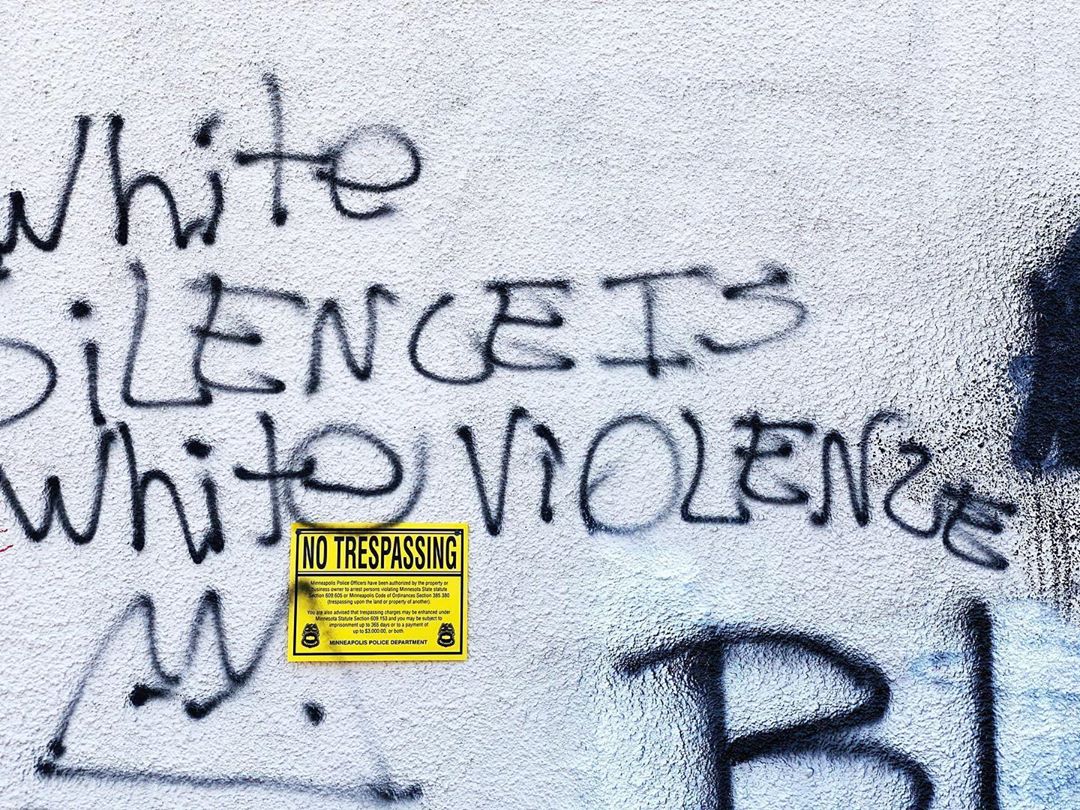 White
SiLENCE IS
White ViOLENCE
NO TRESPASSING
Minneapolis Police Officers have been authorized by the property or
business owner to arrest persons violating Minnesota State statute
Section 609.605 or Minneapolis Code of Ordinances Section 385.380
(trespassing upon the land or property of another).
You are also advised that trespassing charges may be enhanced under
Minnesota Statute Section 609.153 and you may be subject to
imprisonment up to 365 days or to a payment of
up to $3,000.00, or both.
MINNEAPOLIS POLICE DEPARTMENT